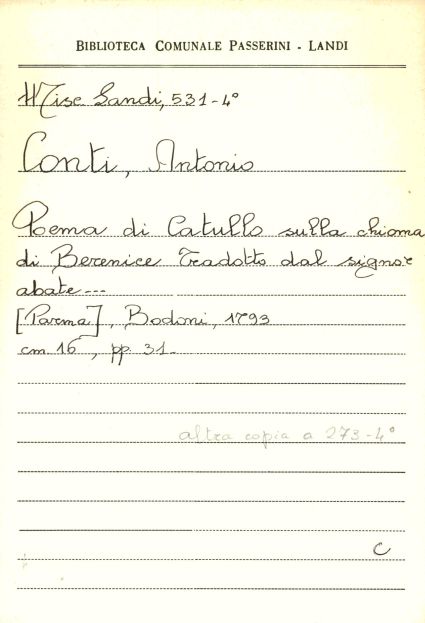 BIBLIOTECA COMUNALE PASSERINI - LANDI
Misc Landi, 531-4°
Conti, Antonio
Poema di Catullo sulla chioma
di Berenice Tradotto dal signore
abate---
[Parma], Bodoni, 1793
cm. 16, pp. 31.
altra copia a 273-4°
C